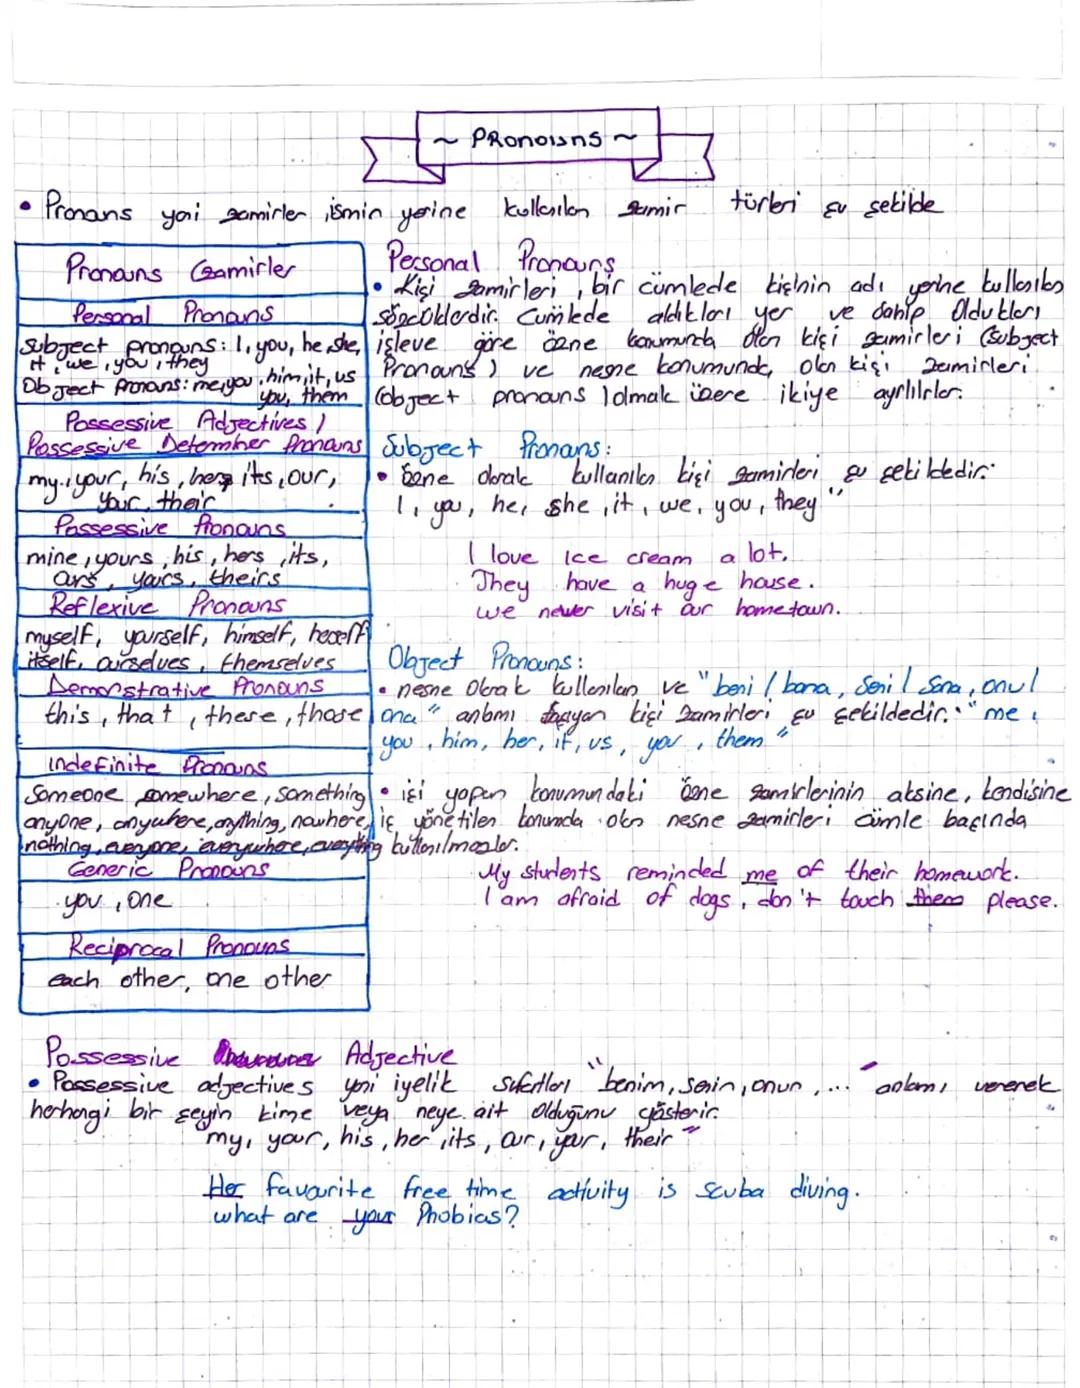 ~ PRonouns ~
• Pronouns yani zamirler, ismin yerine kullanılan zamir türleri şu şekilde
Pronouns (zamirler
Personal Pronouns
Subject pronouns: I, you, he, she,
it, we, you, they
Object Pronouns: me, you, him, it, us
you, them
Possessive Adjectives /
Possessive Determiner Pronouns
my, your, his, her, its, our,
your, their
Possessive Pronouns
mine, yours, his, hers, its,
ours, yours, theirs
Reflexive Pronouns
myself, yourself, himself, herself
itself, ourselves, themselves
Demonstrative Pronouns
this, that, these, those
Indefinite Pronouns
Someone somewhere, something
anyone, anywhere, anything, nowhere,
nothing, everyone, everywhere, everything
Generic Pronouns
you, one
Reciprocal Pronouns
each other, one other
Personal Pronouns
• Kişi zamirleri, bir cümlede kişinin adı yerine kullanılan
sözcüklerdir. Cümlede aldıkları yer ve sahip Oldukları
işleve göre özne konumunda olan kişi zamirleri (Subject
Pronouns) ve nesne konumunda olan kişi zamirleri
(object pronouns) olmak üzere ikiye ayrılırlar.
Subject Pronouns:
• özne olarak kullanılan kişi zamirleri şu şekildedir:
I, you, he, she, it, we, you, they"
I love Ice cream a lot.
They have a huge house.
we never visit our hometown.
Object Pronouns:
• nesne Olarak kullanılan ve "beni / bana, Seni / Sana, onu /
ona" anlamı taşıyan kişi zamirleri şu şekildedir. "me,
you, him, her, it, us, you, them"
• işi yapan konumundaki özne zamirlerinin aksine, kendisine
iş yöneltilen konumda olan nesne zamirleri cümle başında
kullanılmazlar.
My students reminded me of their homework.
I am afraid of dogs, don't touch them please.
Possessive Adjective
• Possessive adjectives yani iyelik sıfatları "benim, senin, onun, ..." anlamı vererek
herhangi bir şeyin kime veya neye ait olduğunu gösterir.
my, your, his, her, its, our, your, their"
Her favourite free time activity is scuba diving.
what are your Phobias?